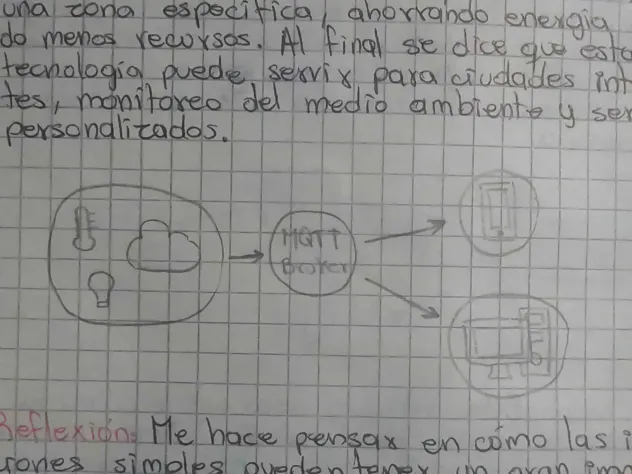 una zona especifica, ahorrando energia
do menos recursos. Al final se dice que esta
tecnología puede servir para ciudades int
tes, monitoreo del medio ambiente y ser
personalizados.
MQTT
Broker
Reflexión: Me hace pensar en cómo las i
simples pueden tener un gran